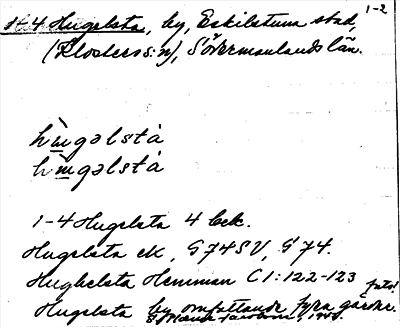 1-2
1-4 Hugelsta, by, Eskilstuna stad,
(Klosters sn), Södermanlands län.
hùŋgəlstà
hùŋgəlstà
1-4 Hugelsta 4 bek.
Hugelsta ek, G74SV, G74.
Hughelsta Hemman C1:122-123
Hugelsta by omfattande fyra gårdar.